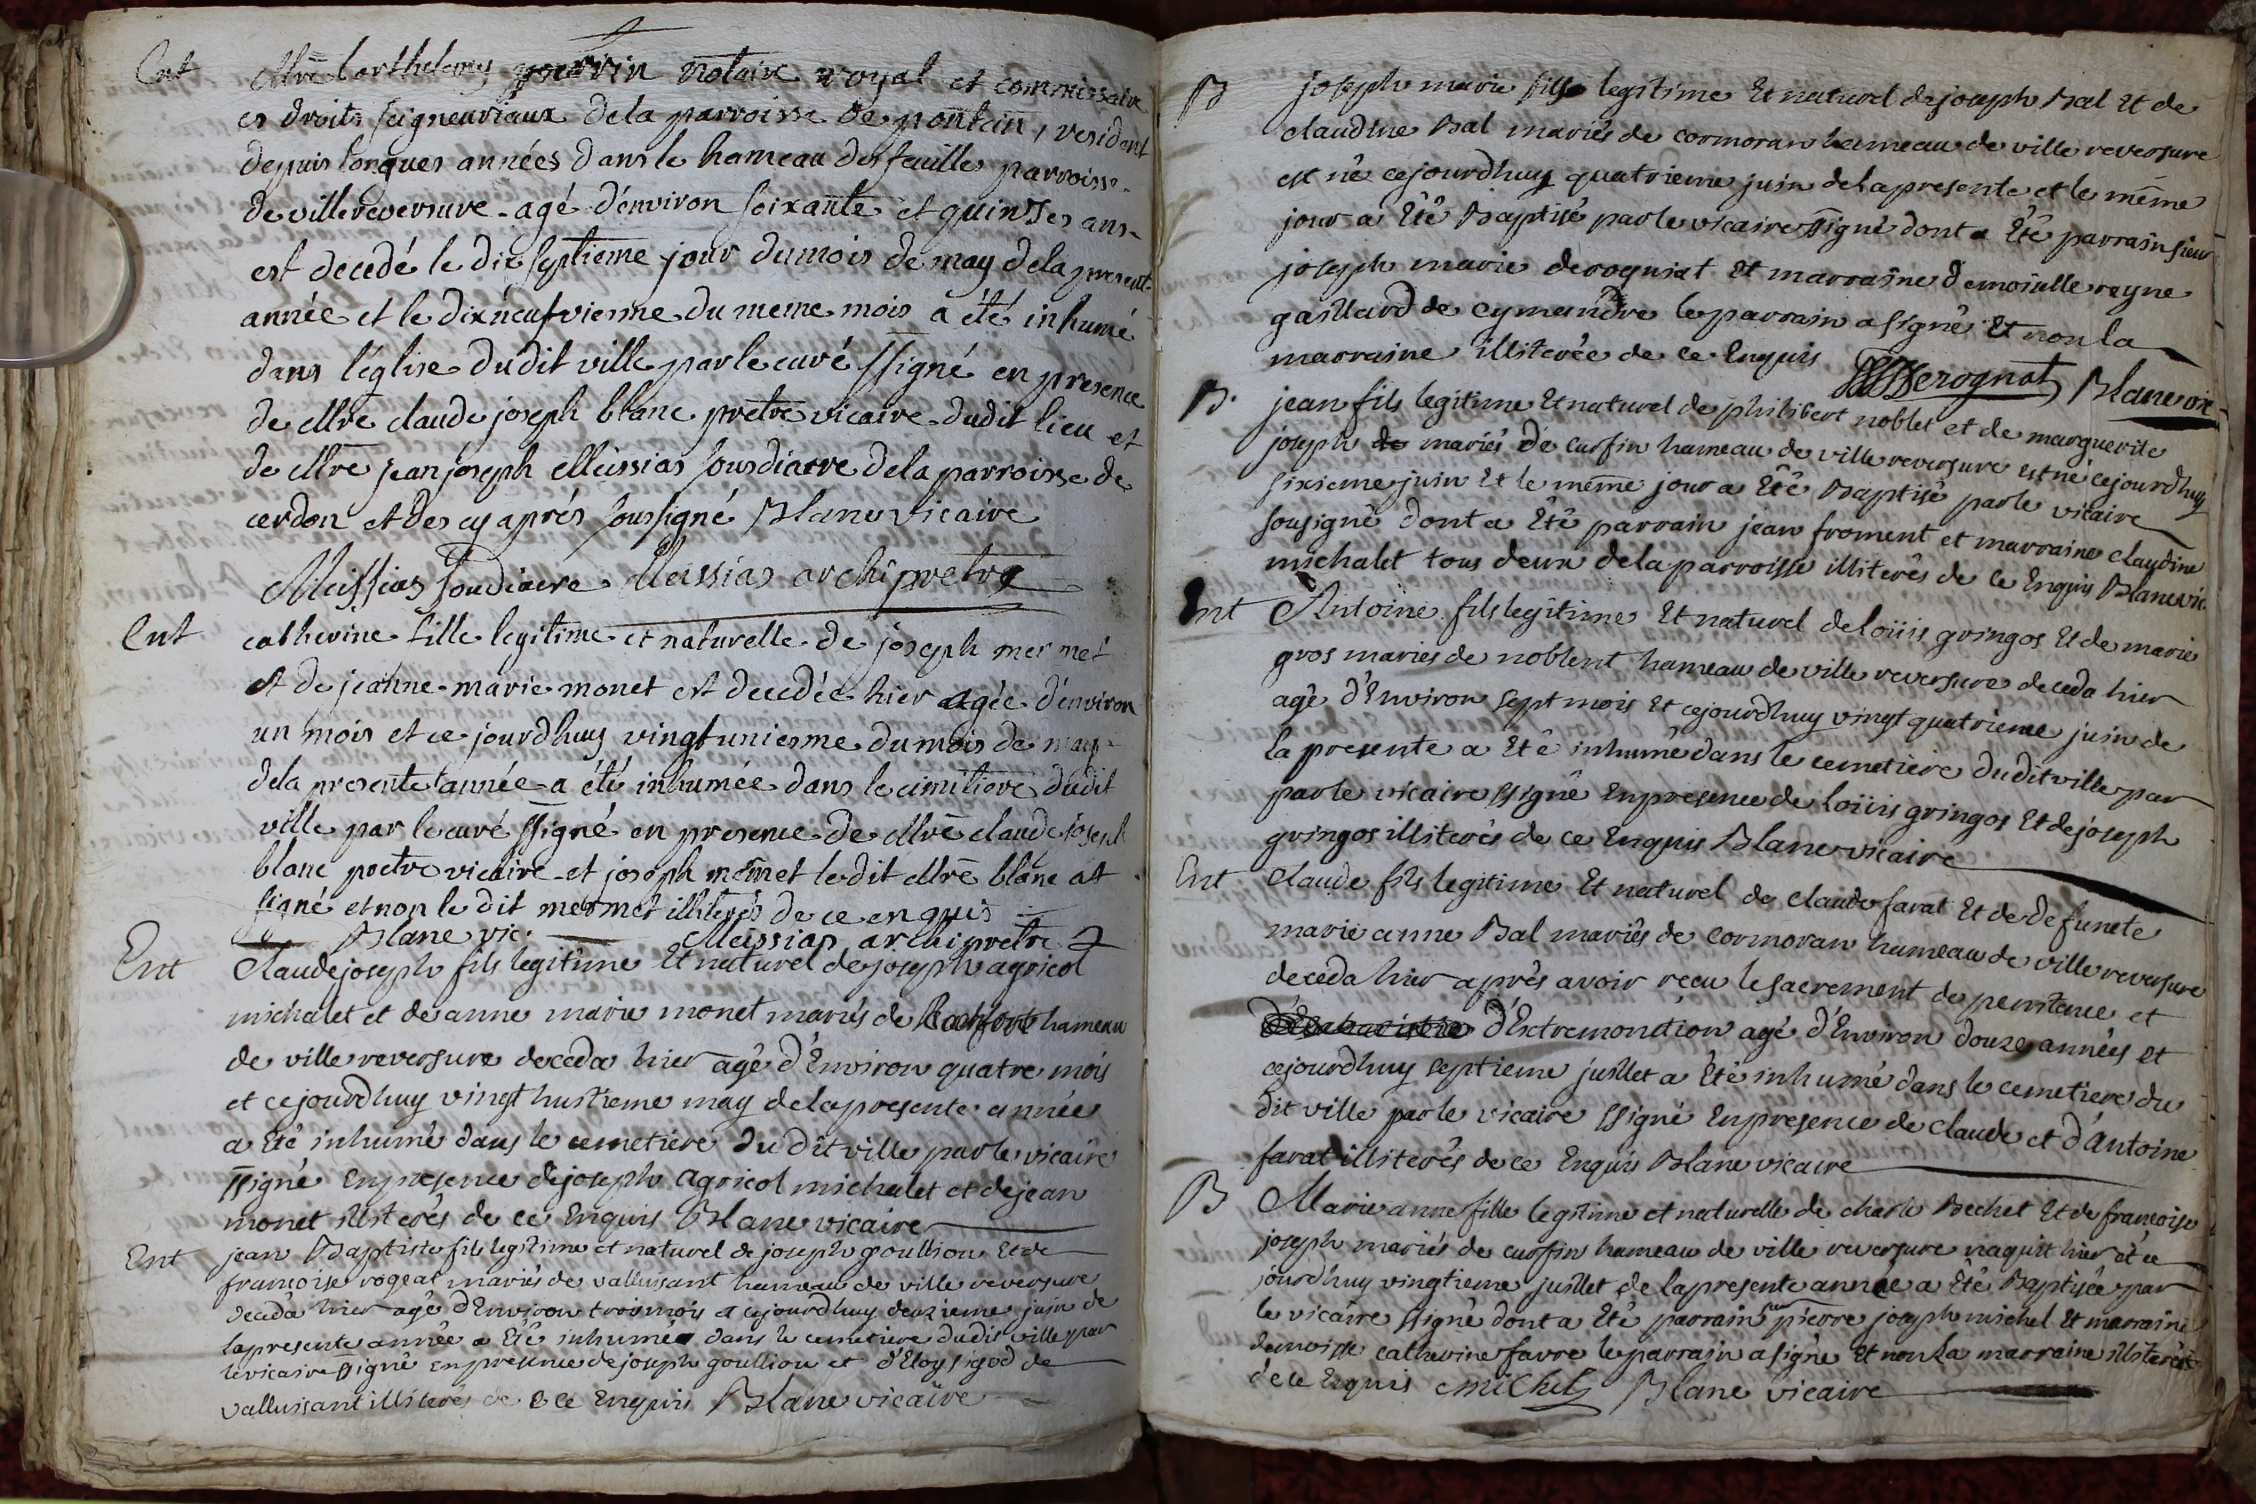 Ent
Mre barthelemy perrin notaire royal et commissaire
es droits seigneuriaux dela parroisse de pontein, resident
depuis longues années dans le hameau des feuille parroisse
de villereversure agé d'environ soixante et quinses ans
est decedé le dix septieme jour du mois de may dela present
année et le dixneufvieme du meme mois a été inhumé
dans l'église dudit ville par le curé ssigné en presence
de Mre claude joseph blanc pretre vicaire dudit lieu et
de Mre jean joseph Meissias sousdiacre dela parroisse de
cerdon et des cy aprés soussigné Blanc vicaire
Meissias soudiacre Meissias archipretre
Ent
catherine fille legitime et naturelle de joseph mermet
et de jeanne marie monet est decedée hier agée d'environ
un mois et ce jourdhuy vingtuniesme du mois de may
dela presente année a été inhumée dans le cimitiere dudit
ville par le curé ssigné en presence de Mre claude joseph
blanc pretre vicaire et joseph mermet ledit Mre blanc at
signé et non le dit mermet illiterés de ce enquis
Blanc vic. Meissias archipretre
Ent
Claude joseph fils legitime Et naturel de joseph agricol
michalet et de anne marie monet mariés de Rochfort hameau
de ville reversure deceda hier agé d'Environ quatre mois
et cejourdhuy vingt huitieme may dela presente année
a Eté inhumé dans le cemetiere du dit ville par le vicaire
ssigné En presence de joseph agricol michalet et de jean
monet illiterés de ce Enquis Blanc vicaire
Ent
jean Baptiste fils legitime et naturel de joseph goullion Et de
françoise rogeat mariés de valluisant hameau de ville reversure
deceda hier agé d'Environ trois mois et cejourdhuy deuxieme juin de
la presente année a Eté inhumé dans le cemetiere dudit ville par
le vicaire ssigné en presence de joseph goullion et d'Eloy sigod de
valluisant illiterés de ce Enquis Blanc vicaire
B
joseph marie fils legitime Et naturel de joseph Bal Et de
claudine Bal mariés de cormoran hameau de ville reversure
est né cejourdhuy quatrieme juin dela presente et le même
jour a Eté Baptisé par le vicaire ssigné dont a Eté parrain sieur
joseph marie derogniat Et marraine demoiselle reyne
gaillard de eymandre le parrain a signé Et non la
marraine illiterée de ce Enquis Derognat Blanc vic
B.
jean fils legitime Et naturel de philibert noblet et de marguerite
joseph de mariés de curfin hameau de ville reversure est né cejourdhuy
sixieme juin Et le même jour a Eté Baptisé par le vicaire
sousigné dont a Eté parrain jean froment et marraine claudine
michalet tous deux dela parroisse illiterés de ce Enquis Blanc vic.
Ent
Antoine fils legitime Et naturel de loüis gringos Et de marie
gros mariés de noblent hameau de ville reversure deceda hier
agé d'Environ sept mois Et cejourdhuy vingt quatrieme juin de
la presente a Eté inhumé dans le cemetiere dudit ville par
par le vicaire ssigné En presence de loüis gringos Et de joseph
gringos illiterés de ce Enquis Blanc vicaire
Ent
Claude fils legitime Et naturel de claude farat Et de defuncte
marie anne Bal mariés de cormoran hameau de ville reversure
deceda hier après avoir reçu le sacrement de penitence et
d'Extremonction agé d'Environ douze années et
cejourdhuy septieme juillet a Eté inhumé dans le cemetiere du
dit ville par le vicaire ssigné En presence de claude et d'Antoine
farat illiterés de ce Enquis Blanc vicaire
B
Marie anne fille legitime et naturelle de charle Bechet Et de françoise
joseph mariés de curfin hameau de ville reversure naquit hier et ce
jourdhuy vingtieme juillet de la presente année a Eté Baptisée par
le vicaire ssigné dont a Eté parrain sieur pierre joseph michel Et marraine
demoiselle catherine favre le parrain a signé Et non la marraine illiterée
de ce Enquis Michel Blanc vicaire